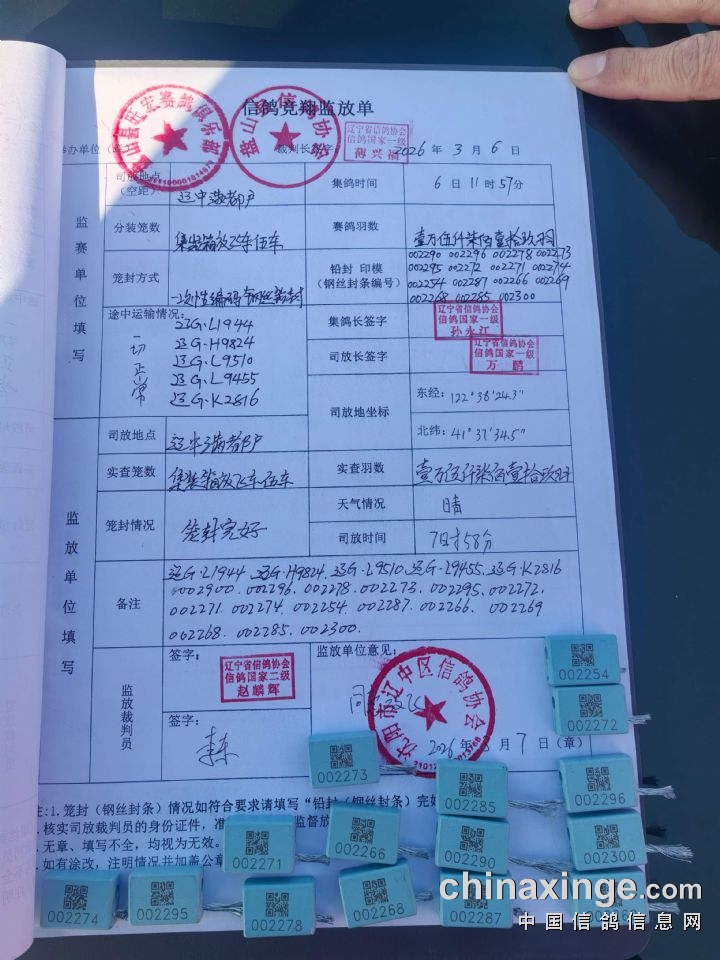 信鸽竞翔监放单
盘山县信鸽协会
举办单位（章） 裁判长签字
辽宁省信鸽协会
信鸽国家一级
傅兴福
2026 年 3 月 6 日
监赛单位填写
司放地点（空距） 辽中满都户
集鸽时间 6 日 11 时 57分
分装笼数 集装箱放飞车伍车
赛鸽羽数 壹万伍仟柒佰壹拾玖羽
笼封方式 一次性编码钢丝铅封
铅封 印模（钢丝封条编号）
002290 002296 002278 002273
002295 002272 002271 002274
002254 002287 002266 002269
002268 002285 002300
途中运输情况：
一切正常
辽G·L1944
辽G·H9824
辽G·L9510
辽G·L9455
辽G·K2816
集鸽长签字
辽宁省信鸽协会
信鸽国家一级
孙永江
司放长签字
辽宁省信鸽协会
信鸽国家一级
万鹏
司放地坐标
东经：122°38′24.3″
北纬：41°37′34.5″
监放单位填写
司放地点 辽中满都户
实查笼数 集装箱放飞车伍车
实查羽数 壹万伍仟柒佰壹拾玖羽
笼封情况 笼封完好
天气情况 晴
司放时间 7时58分
备注
辽G·L1944.辽G·H9824.辽G·L9510.辽G·L9455.辽G·K2816
002900. 002296. 002278. 002273. 002295. 002272.
002271. 002274. 002254. 002287. 002266. 002269
002268. 002285. 002300.
监放裁判员
签字：
辽宁省信鸽协会
信鸽国家二级
赵麟辉
签字：
李东
监放单位意见：
同意放飞
沈阳市辽中区信鸽协会
2026 年 3 月 7 日（章）
注：1.笼封（钢丝封条）情况如符合要求请填写“铅封（钢丝封条）完好
.核实司放裁判员的身份证件，准
监督放
.无章、填写不全，均视为无效。
.如有涂改，注明情况并加盖公章
002254
002272
002273
002285
002296
002271
002266
002290
002300
002274
002295
002278
002268
002287
chinaxinge.com
中国信鸽信息网